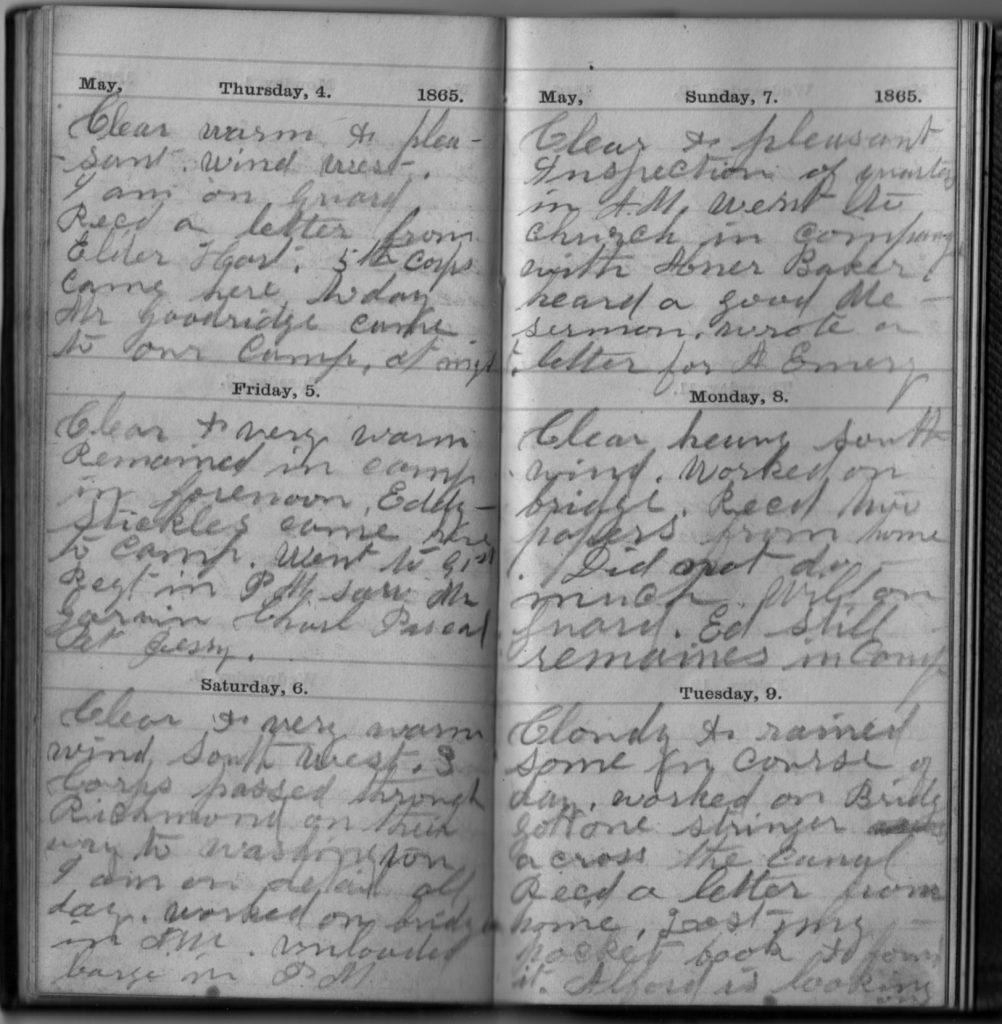 May, Thursday, 4. 1865.
Clear warm & plea-
sant. wind west.
I am on guard
Recd a letter from
Elder Hart. 5th Corps
Came here, today
Mr Goodridge came
to our Camp, at night.
Friday, 5.
Clear & very warm
Remained in camp
in forenoon, Eddy
Stickles came here
to camp. Went to 91st
Regt in P.M. saw Mr
Garvin Charl Pascal
Pet Jessy.
Saturday, 6.
Clear & very warm
wind South West. 3
Corps passed through
Richmond on their
way to washington
I am on detail all
day. worked on bridg
in A.M. unloaded
barge in P.M.
May, Sunday, 7. 1865.
Clear & pleasant
Inspection of quarters
in A.M. went to
church in company
with Abner Baker.
heard a good Me
sermon. wrote a
letter for A Emery
Monday, 8.
Clear heavy south
wind. Worked on
bridge. Recd two
papers from home
Did not do
much. Will on
guard. Ed still
remaines in Camp
Tuesday, 9.
Cloudy & rained
some in course of
day. worked on Bridg
gott one stringer
across the canal
Recd a letter from
home, Lost my
pocket book & found
it. Alford is looking